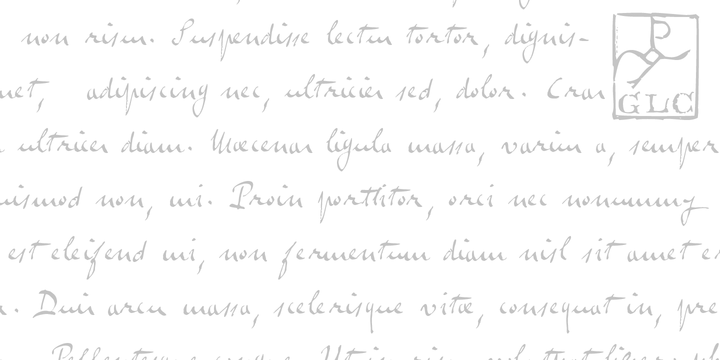 non risus. Suspendisse lectus tortor, dignis-
met, adipiscing nec, ultricies sed, dolor. Cras
GLC
ultrices diam. Maecenas ligula massa, varius a, semper
uismod non, mi. Proin porttitor, orci nec nonummy
est eleifend mi, non fermentum diam nisl sit amet e
. Duis arcu massa, scelerisque vitæ, consequat in, pre
Pellentesque congue. Ut in